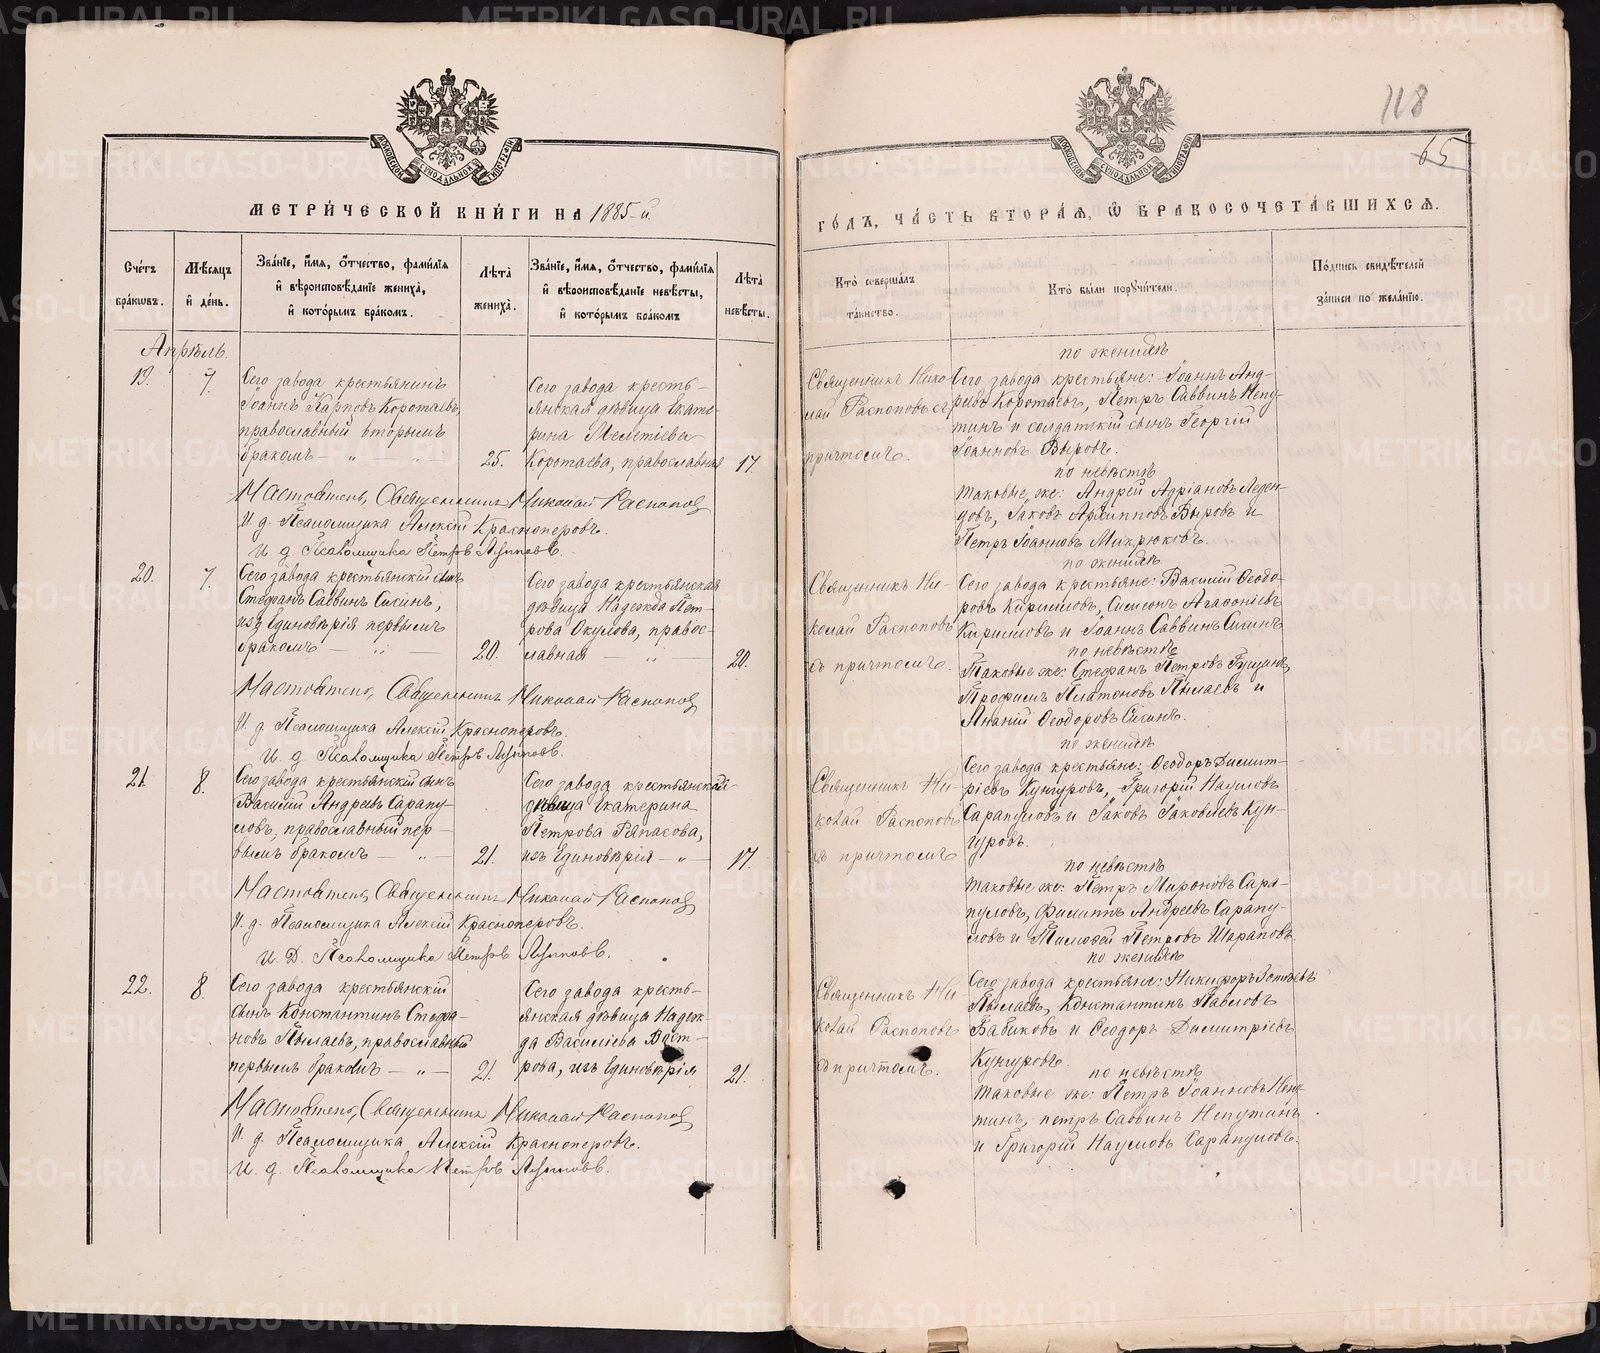 МЕТРИ́ЧЕСКОЙ КНИ́ГИ НА 1885-й
Сче́тъ бра́кѡвъ.
Мѣ́сяцъ и҆ де́нь.
Зва́нїе, и҆́мя, ѻ҆́тчество, фами́лїя и҆ вѣроисповѣ́данїе жениха̀, и҆ кото́рымъ бра́комъ.
Лѣ́та жениха̀.
Зва́нїе, и҆́мя, ѻ҆́тчество, фами́лїя и҆ вѣроисповѣ́данїе невѣ́сты, и҆ кото́рымъ бра́комъ
Лѣ́та невѣ́сты.
Апрѣль.
19.
7.
Сего завода крестьянинъ
Іоаннъ Карповъ Коротаевъ,
православный вторымъ
бракомъ — " —
25.
Сего завода кресть-
янская дѣвица Екате-
рина Мелетіева
Коротаева, православная
17.
Настоятель, Священникъ Николай Распопов
И. д. Псаломщика Алексій Красноперовъ.
И д Псаломщика Петръ
20.
7.
Сего завода крестьянскій сынъ
Стефанъ Саввинъ Сисинъ,
изъ Единовѣрія первымъ
бракомъ — " —
20.
Сего завода крестьянская
дѣвица Надежда Пет-
рова Окулова, правос-
лавная — " —
20.
Настоятель, Священникъ Николай Распопов
И. д. Псаломщика Алексій Красноперовъ.
И. д Псаломщика Петръ
21.
8.
Сего завода крестьянскій сынъ
Василій Андреевъ Сарапу-
ловъ, православный пер-
вымъ бракомъ — " —
21.
Сего завода крестьянская
дѣвица Екатерина
Петрова
изъ Единовѣрія — " —
17.
Настоятель, Священникъ Николай Распопов
И. д. Псаломщика Алексій Красноперовъ.
И. Д. Псаломщика Петръ
22.
8.
Сего завода крестьянскій
сынъ Константинъ Стефа-
новъ Пылаевъ, православный
первымъ бракомъ — " —
21.
Сего завода кресть-
янская дѣвица Надеж-
да Василіева Вост-
рова, изъ Единовѣрія
21.
Настоятель, Священникъ Николай Распопов
И. д. Псаломщика Алексій Красноперовъ.
И. д. Псаломщика Петръ
118
65
ГО́ДЪ, ЧА́СТЬ ВТОРА́Я, Ѡ҆ БРАКОСОЧЕТА́ВШИХСЯ.
Кто̀ соверша́лъ та́инство.
Кто̀ бы́ли порꙋчи́тели.
По́дпись свидѣ́телей за́писи по жела́нїю.
Священникъ Нико-
лай Распоповъ съ
причтомъ.
по женихѣ
Сего завода крестьяне: Іоаннъ Анд-
реевъ Коротаевъ, Петръ Саввинъ Непу-
тинъ и солдатскій сынъ Георгій
Іоанновъ Выровъ.
по невѣстѣ
таковые же: Андрей Адріановъ Леден-
цовъ, Іаковъ Архипповъ Выровъ и
Петръ Іоанновъ Микрюковъ.
Священникъ Ни-
колай Распоповъ
съ причтомъ.
по женихѣ
Сего завода крестьяне: Василій Ѳеодо-
ровъ Кириловъ, Симеонъ Агафоніевъ
Кириловъ и Іоаннъ Саввинъ Сисинъ
по невѣстѣ
Таковые же: Стефанъ Петровъ Гущинъ,
Трофимъ Платоновъ Пылаевъ и
Ананій Ѳеодоровъ Сисинъ.
Священникъ Ни-
колай Распоповъ
съ причтомъ
по женихѣ
Сего завода крестьяне: Ѳеодоръ Димит-
ріевъ Кунгуровъ, Григорій Наумовъ
Сарапуловъ и Іаковъ Іаковлевъ Кун-
гуровъ.
по невѣстѣ
таковые же: Петръ Мироновъ Сара-
пуловъ, Филиппъ Андреевъ Сарапу-
ловъ и Тимофей Петровъ Шараповъ.
Священникъ Ни-
колай Распоповъ
съ причтомъ.
по женихѣ
Сего завода крестьяне: Никифоръ
Пылаевъ, Константинъ Павловъ
Бабиковъ и Ѳеодоръ Димитріевъ
Кунгуровъ.
по невѣстѣ
таковые же: Петръ Іоанновъ Непу-
тинъ, петръ Саввинъ Непутинъ
и Григорій Наумовъ Сарапуловъ.
METRIKI.GASO-URAL.RU